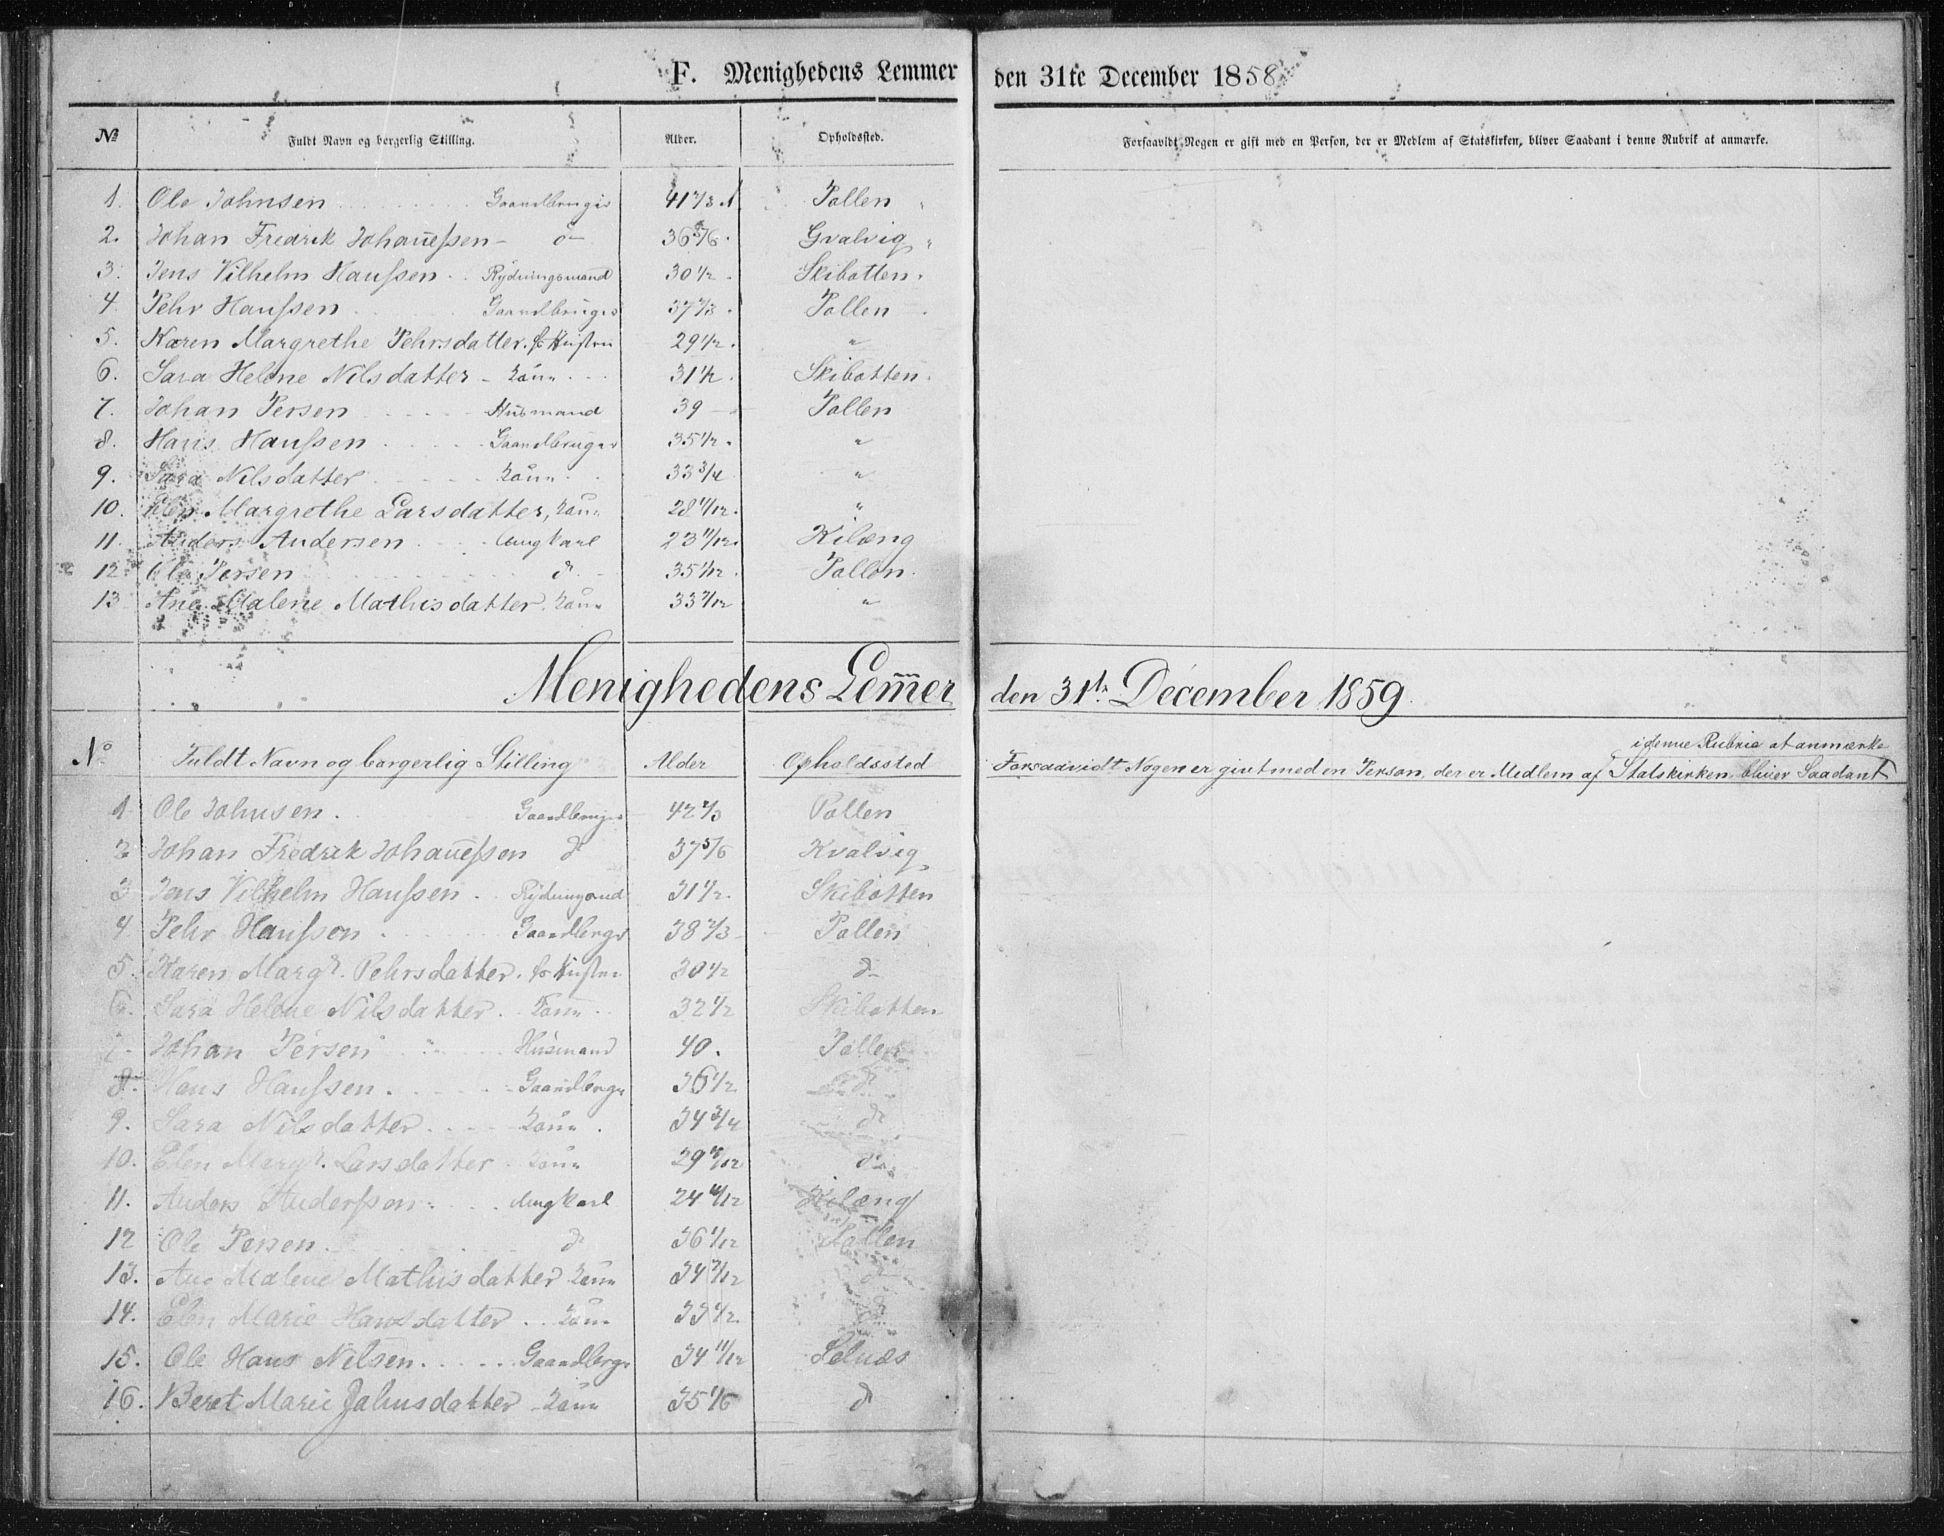 F. Menighedens Lemmer den 31te December 1858
№ Fuldt Navn og borgerlig Stilling. Alder. Opholdssted. Forsaavidt Nogen er gift med en Person, der er Medlem af Statskirken, bliver Saadant i denne Rubrik at anmærke.
1. Ole Johnsen Gaardbruger 41 2/3 Pollen "
2. Johan Fredrik Johanessen - do - 36 5/6. Gvalvig "
3. Jens Vilhelm Hanssen Rydningsmand 30 1/2 Skibotten.
4. Pehr Hanssen Gaardbruger 37 2/3. Pollen
5. Karen Margrethe Pehrsdatter. 29 1/2. "
6. Sara Helene Nilsdatter - Kone 31 1/2. Skibotten.
7. Johan Persen Husmand 39 - Pollen
8. Hans Hanssen Gaardbruger 35 1/2. "
9. Sara Nilsdatter Kone 33 3/4 "
10. Elen Margrethe Larsdatter, Kone "
11. Anders Andersen Ungkarl 23 11/12. Kilæng
12. Ole Persen d. 35 1/12. Pollen.
13 Ane Malene Mathisdatter. Kone 33 2/12 "
Menighedens Lemmer den 31te December 1859.
No Fuldt Navn og borgerlig Stilling Alder Opholdssted Forsaavidt Nogen er givt med en Person, der er Medlem af Statskirken, bliver Saadant
i denne Rubrik at anmærke
1 Ole Johnsen. Gaardbruger 42 2/3 Pollen
2 Johan Fredrik Johanessen d 37 5/6 Kvalvig
3 Jens Vilhelm Hanssen. 31 1/2. Skibotten
4 Pehr Hansson Gaardbrgr 38 2/3 Pollen
5. Karen Margr. Pehrsdatter. 30 1/2 d
6. Sara Helene Nilsdatter. Kone 32 1/2 Skibotten
7. Johan Persen Husmand 40. Pollen
8. Hans Hanssen. Gaardbrgr 36 1/2 d
9. Sara Nilsdatter Kone. 34 3/4 d
10. Elen Margr. Larsdatter Kone d
11. Anders Andersson. Ungkarl 24 11/12 Kilæng
12 Ole Persen. d 36 1/12 Pollen
13. Ane Malene Mathisdatter Kone 34 2/12 d
14. Elen Marie Hansdatter Kone 33 1/2. d
15. Ole Hans Nilsen. Gaardbrgr 34 11/12 Selnæs
16. Beret Marie Jahnsdatter - Kone 35 1/6 d